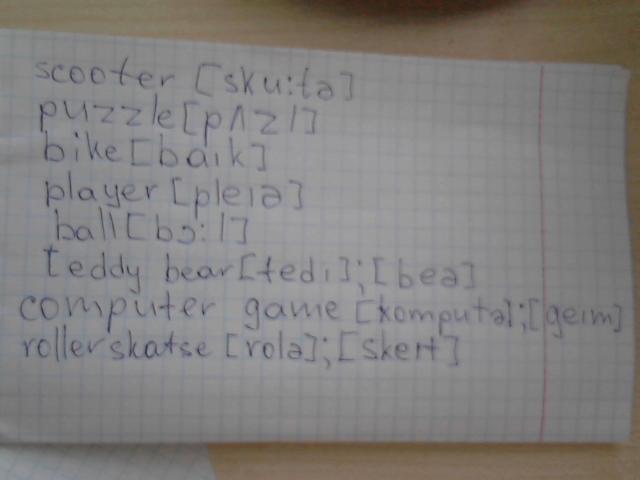 scooter [sku:tə]
puzzle [pʌzl]
bike [baik]
player [pleıə]
ball [bɔ:l]
teddy bear [tedı]; [beə]
computer game [komputə]; [geım]
rollerskatse [rolə]; [skeıt]